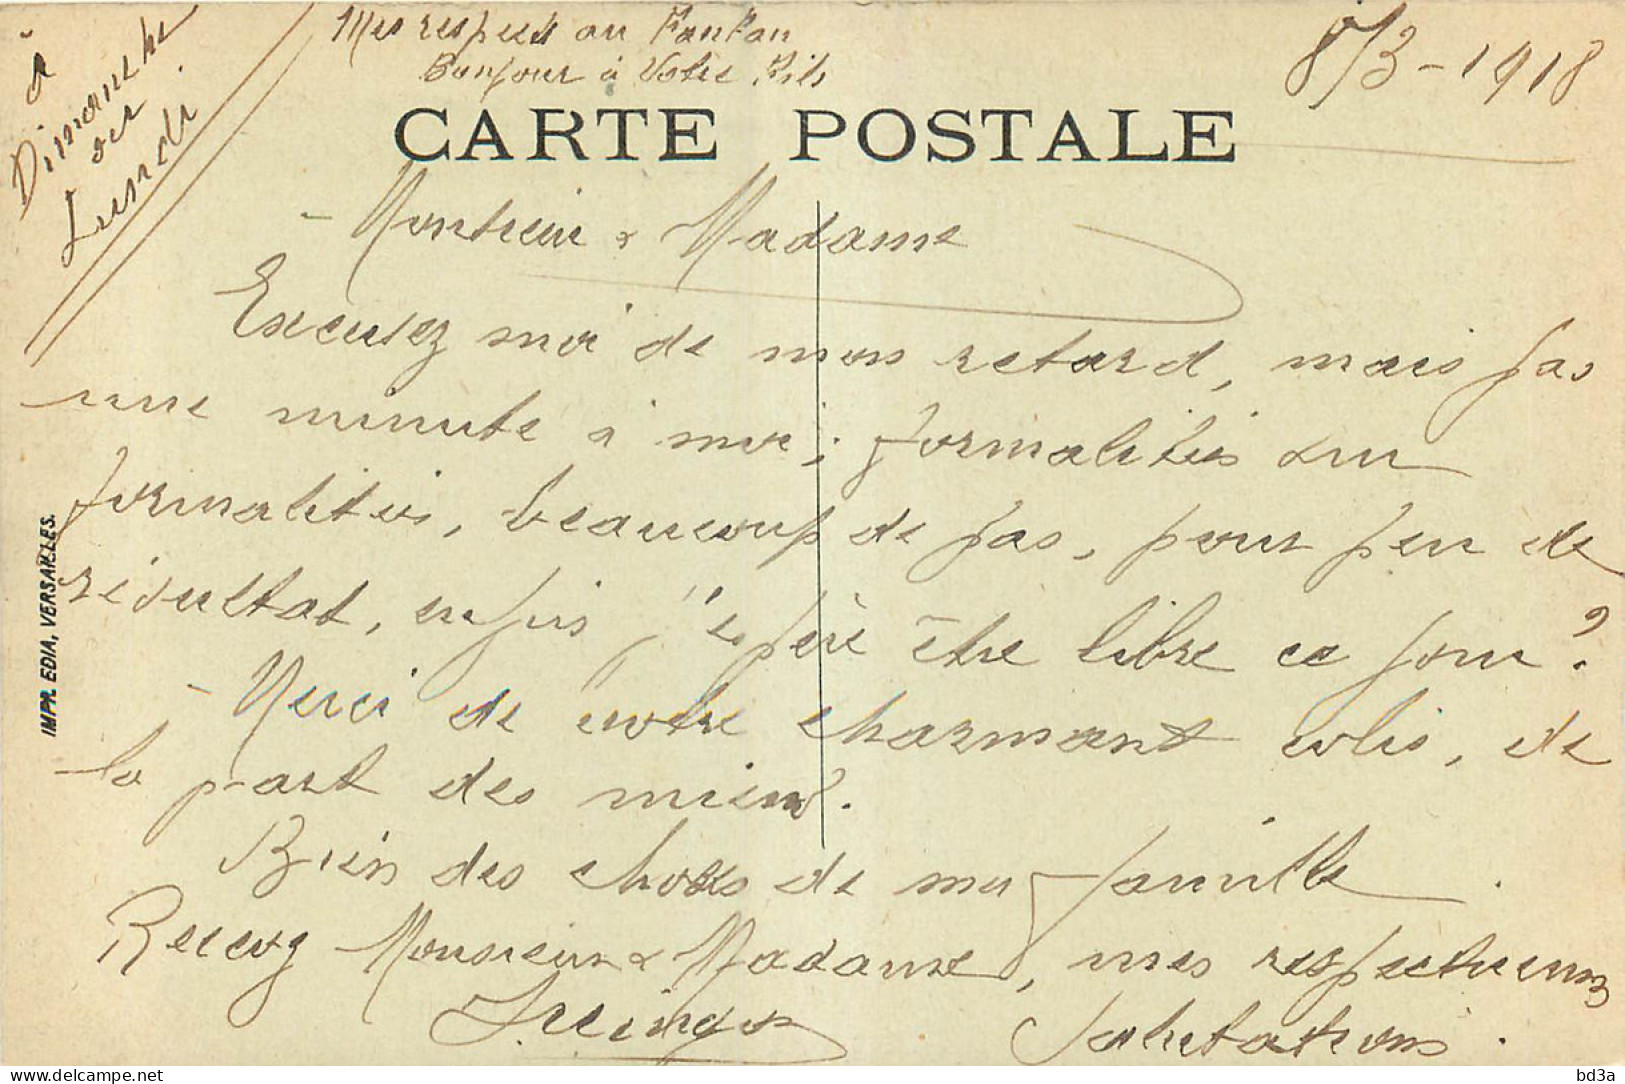 à
Dimanche
ou
Lundi
Mes respects au
Bonjour à Votre Fils
8/3-1918
CARTE POSTALE
- Monsieur & Madame
Excusez moi de mon retard, mais pas
une minute à moi; formalités sur
formalités, beaucoup de pas, pour peu de
résultat, enfin j'espère être libre ce jour?
- Merci de votre charmant colis, de
la part des miens.
Bien des choses de ma famille.
Recevez Monsieur & Madame, mes respectueuses
Salutations.
IMPR. EDIA, VERSAILLES.
bd3a